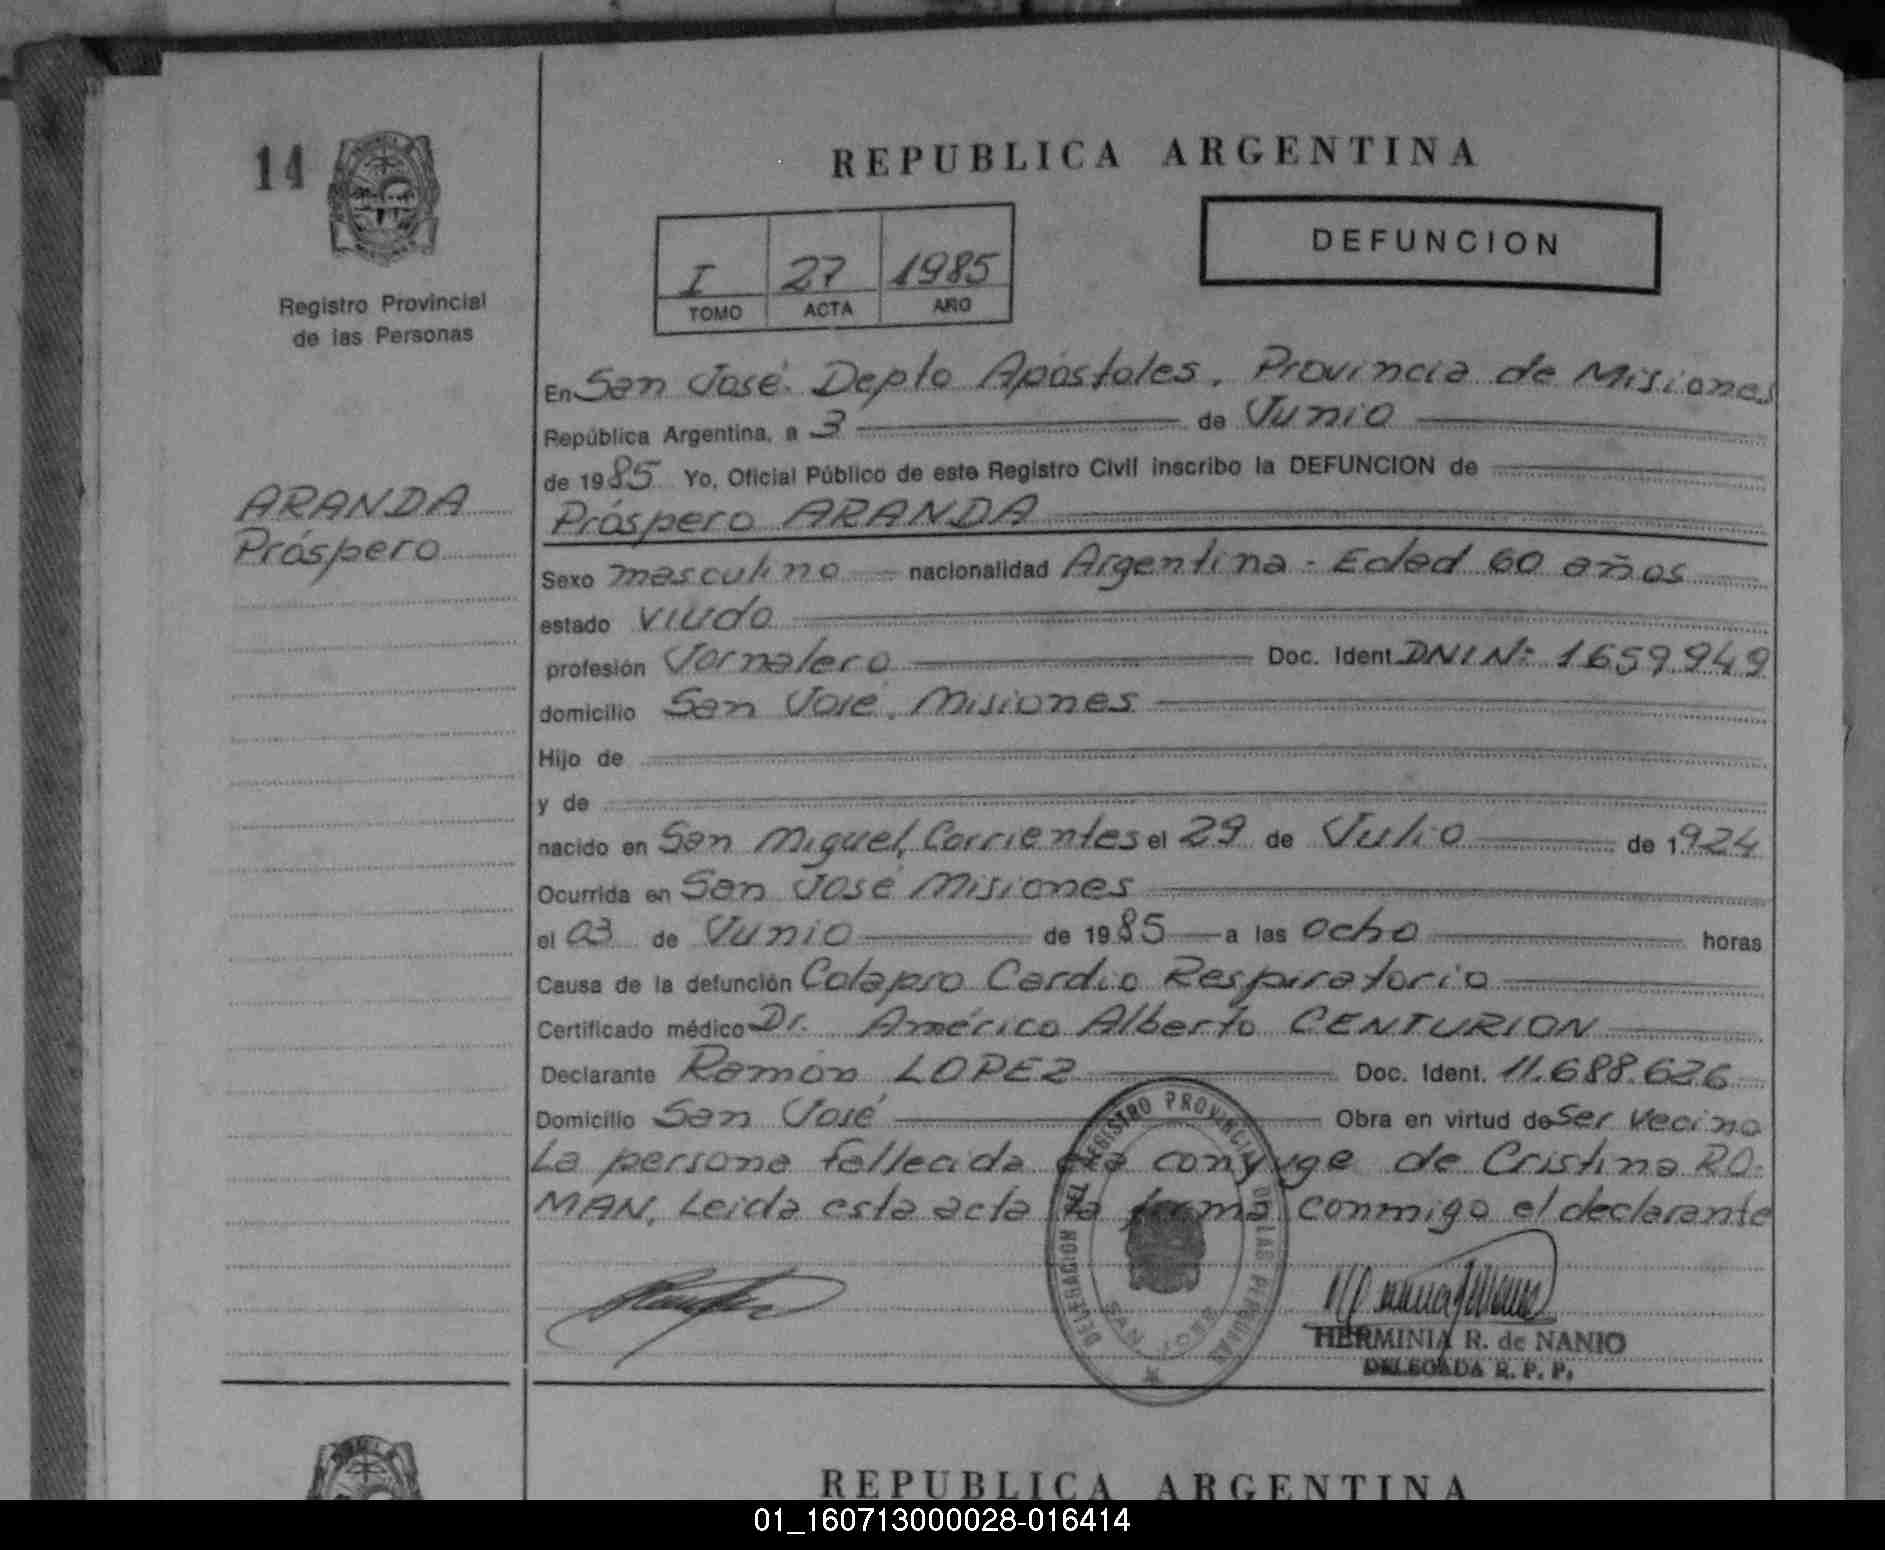 14
REPUBLICA ARGENTINA
DEFUNCION
I 27 1985
TOMO ACTA AÑO
Registro Provincial
de las Personas
ARANDA
Próspero
En San José. Depto Apóstoles, Provincia de Misiones
República Argentina, a 3 de Junio
de 1985 Yo, Oficial Público de este Registro Civil inscribo la DEFUNCION de
Próspero ARANDA
Sexo masculino nacionalidad Argentina - Edad 60 años
estado viudo
profesión Jornalero Doc. Ident. DNI Nº 1659949
domicilio San José, Misiones
Hijo de
y de
nacido en San Miguel, Corrientes el 29 de Julio de 1924
Ocurrida en San José Misiones
el 03 de Junio de 1985 a las ocho horas
Causa de la defunción Colapso Cardio Respiratorio
Certificado médico Dr. Américo Alberto CENTURION
Declarante Ramón LOPEZ Doc. Ident. 11.688.626
Domicilio San José Obra en virtud de Ser vecino
La persona fallecida era conyuge de Cristina RO-
MAN. Leida esta acta la firma conmigo el declarante
DELEGACION DEL REGISTRO PROVINCIAL DE LAS PERSONAS
SAN JOSE
HERMINIA R. de NANIO
DELEGADA R. P. P.
REPUBLICA ARGENTINA
01_160713000028-016414